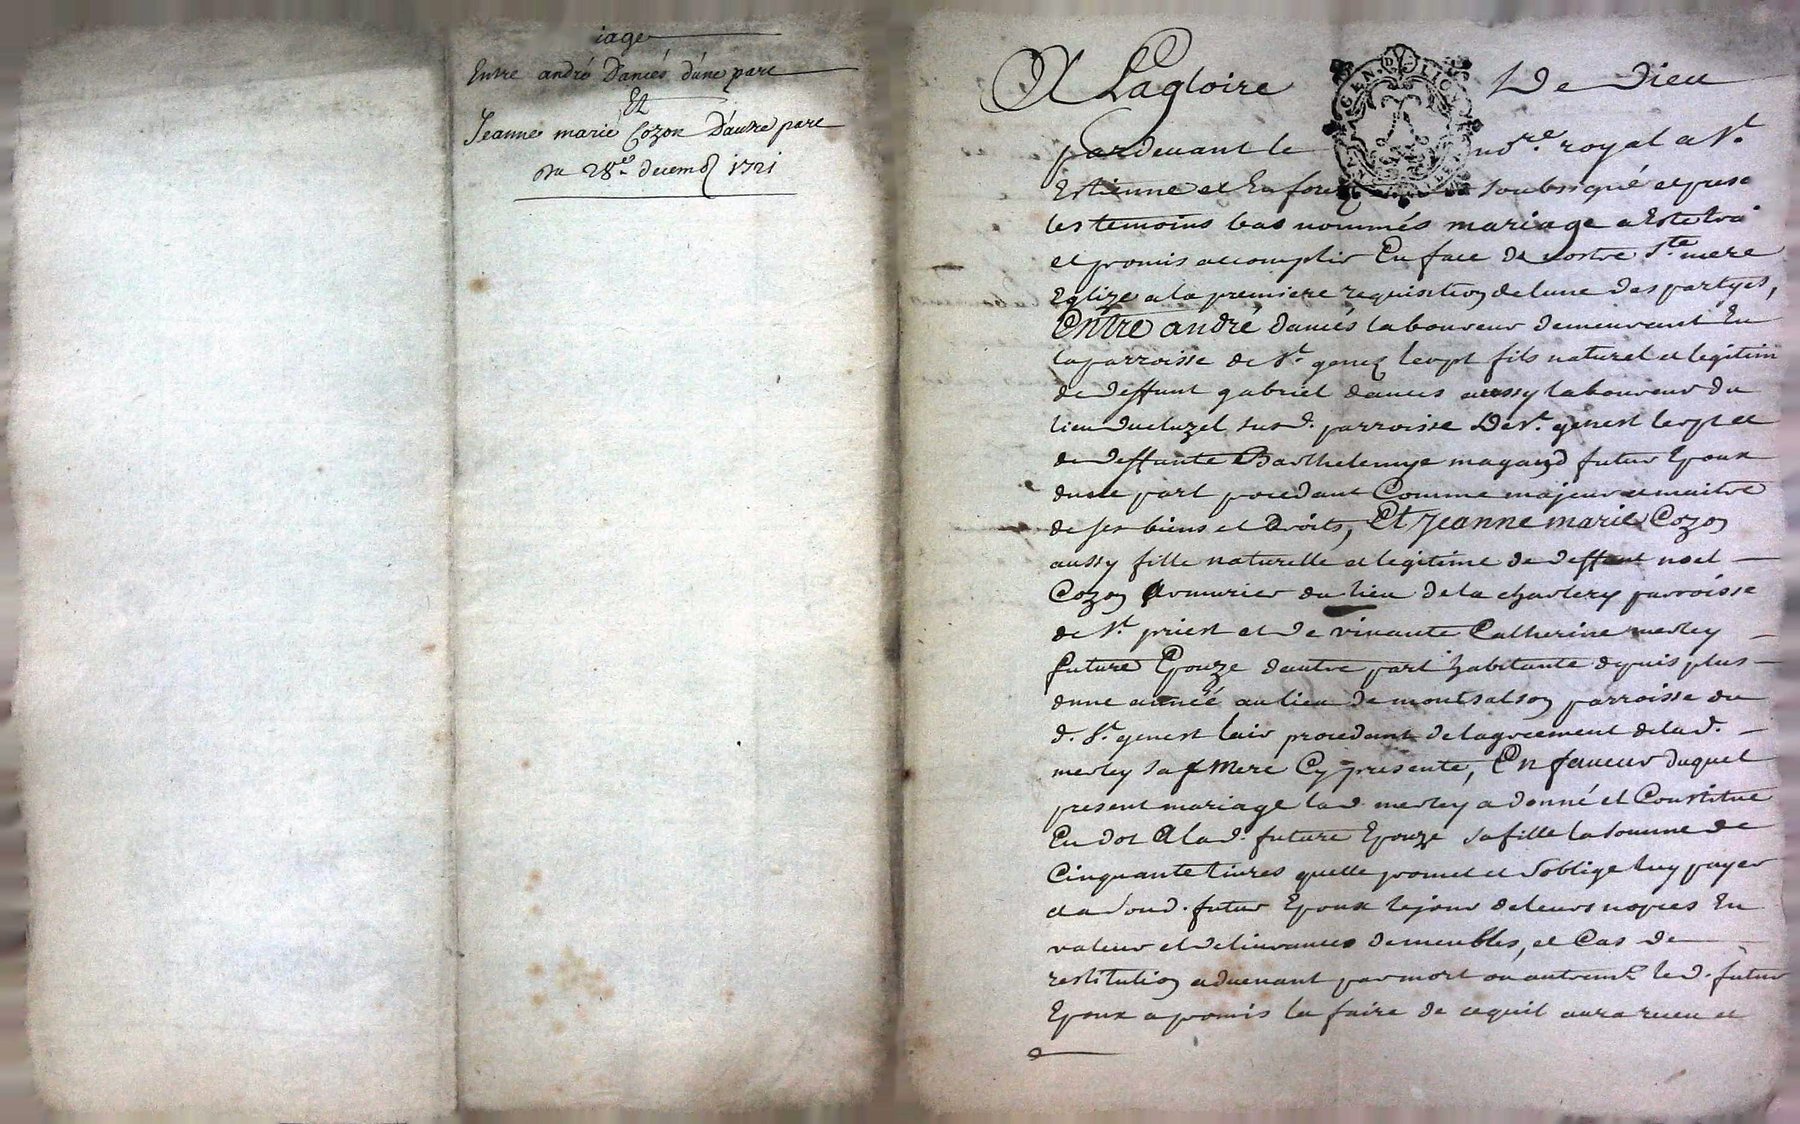 iage
Entre andré Daniés d'une part
Et
Jeanne marie Cozon D'autre part
Du 28e decemb 1721
A Lagloire De Dieu
GEN. DE LION
pardeuant le notre. royal a St.
Estienne et En forez soubsigné et prese
les temoins bas nommés mariage a Esté trai
et promis accomplir En face de nostre Ste. mere
Eglize a la premiere requisition de lune des partyes,
Entre andré daniés laboureur demeurant En
la parroisse de St. genez lerpt fils naturel et legitim
de deffunt gabriel danies aussy laboureur du
lieu ducluzel susd. parroisse De St. genest lerpt et
de deffunte Barthelemye magand futur Epoux
dune part procedant Comme majeur et maitre
de ses biens et Droits, Et Jeanne marie Cozon
aussy fille naturelle et legitime de deffunt noel
Cozon Armurier du lieu de la charlery parroisse
de St. priest et de viuante Catherine merley
future Epouze dautre part habitante depuis plus
dune année au lieu de montsalson parroisse du
d. St. genest lair procedant de lagreement de lad.
merley sa mere Cy presente, En faueur duquel
present mariage lad. merley a donné et Constitue
En dot A lad. future Epouze sa fille la somme de
Cinquante liures quelle promet et soblige luy payer
et a sond. futur Epoux le jour de leurs nopces En
valeur et deliurances de meubles, et Cas de
restitution aduenant par mort ou autremt. led. futur
Epoux a promis la faire de ce quil aura receu et